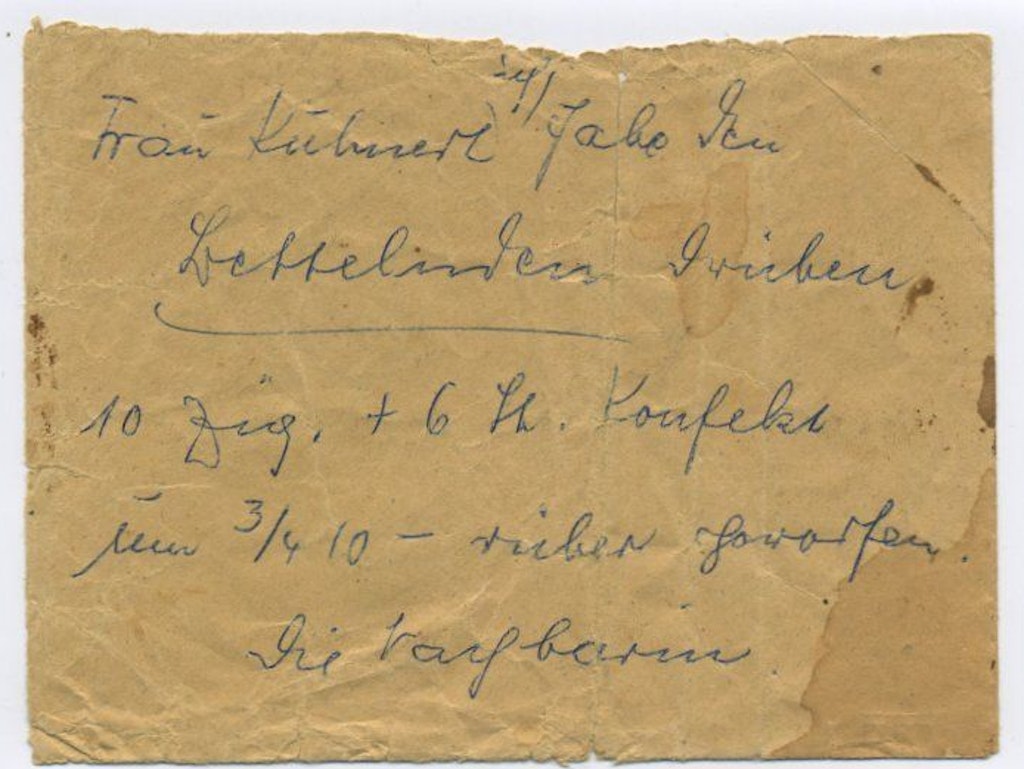 Frau Kühnert habe den
Bettelnden drüben
10 Zig. + 6 St. Konfekt
um 3/4 10 – rüber geworfen.
Die Nachbarin.